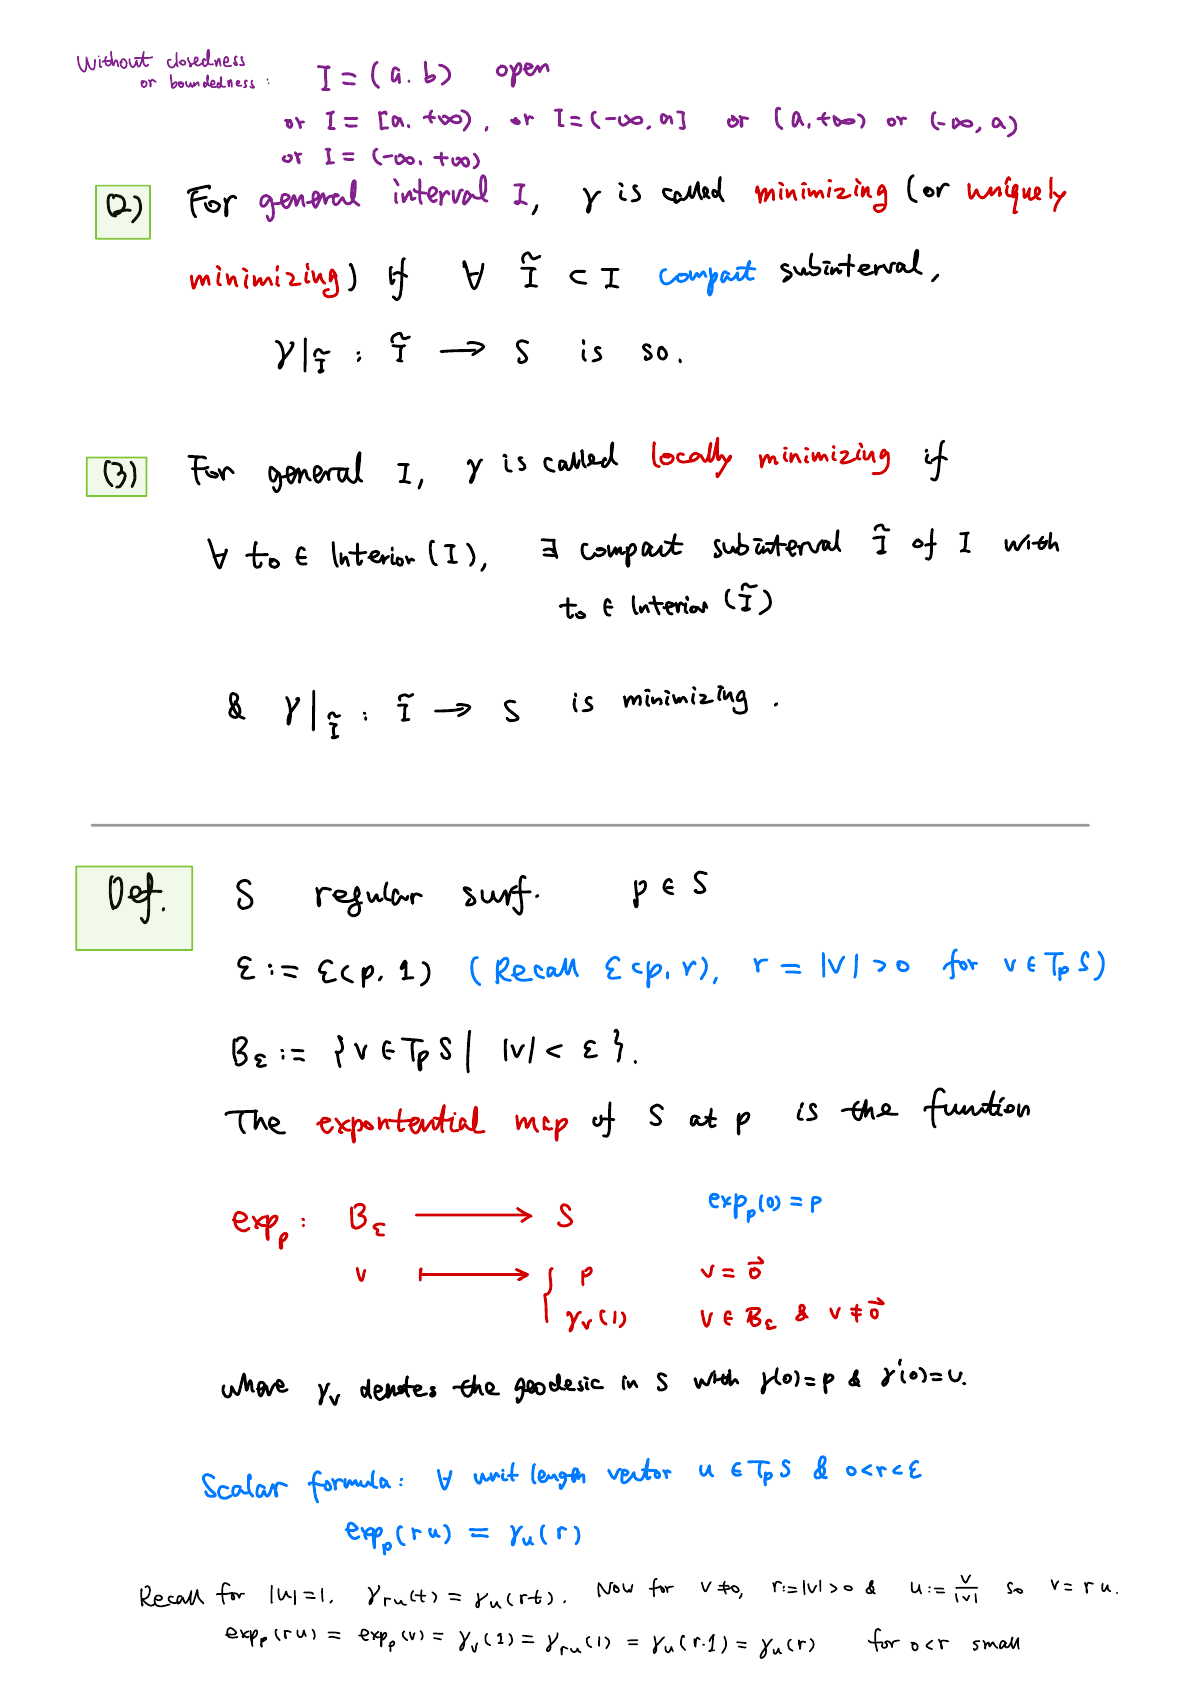 Without closedness
or boundedness :
I = (a. b) open
or I = [a. +∞), or I = (-∞, a] or (a, +∞) or (-∞, a)
or I = (-∞. +∞)
(2) For general interval I, γ is called minimizing (or uniquely
minimizing) if ∀ Ĩ ⊂ I compact subinterval,
γ|_Ĩ : Ĩ → S is so.
(3) For general I, γ is called locally minimizing if
∀ t₀ ∈ Interior (I), ∃ compact subinterval Ĩ of I with
t₀ ∈ Interior (Ĩ)
& γ|_Ĩ : Ĩ → S is minimizing.
Def. S regular surf. p ∈ S
ε := ε(p. 1) (Recall ε(p, r), r = |v| > 0 for v ∈ TₚS)
B_ε := {v ∈ TₚS | |v| < ε}.
The exponential map of S at p is the function
expₚ : B_ε → S expₚ(0) = p
v ↦ { p v = 0⃗
γᵥ(1) v ∈ B_ε & v ≠ 0⃗
where γᵥ denotes the geodesic in S with γ(0)=p & γ'(0)=v.
Scalar formula: ∀ unit length vector u ∈ TₚS & 0<r<ε
expₚ(ru) = γᵤ(r)
Recall for |u|=1, γᵣᵤ(t) = γᵤ(rt). Now for v≠0, r:=|v|>0 & u:= v/|v| so v = ru.
expₚ(ru) = expₚ(v) = γᵥ(1) = γᵣᵤ(1) = γᵤ(r·1) = γᵤ(r) for 0<r small